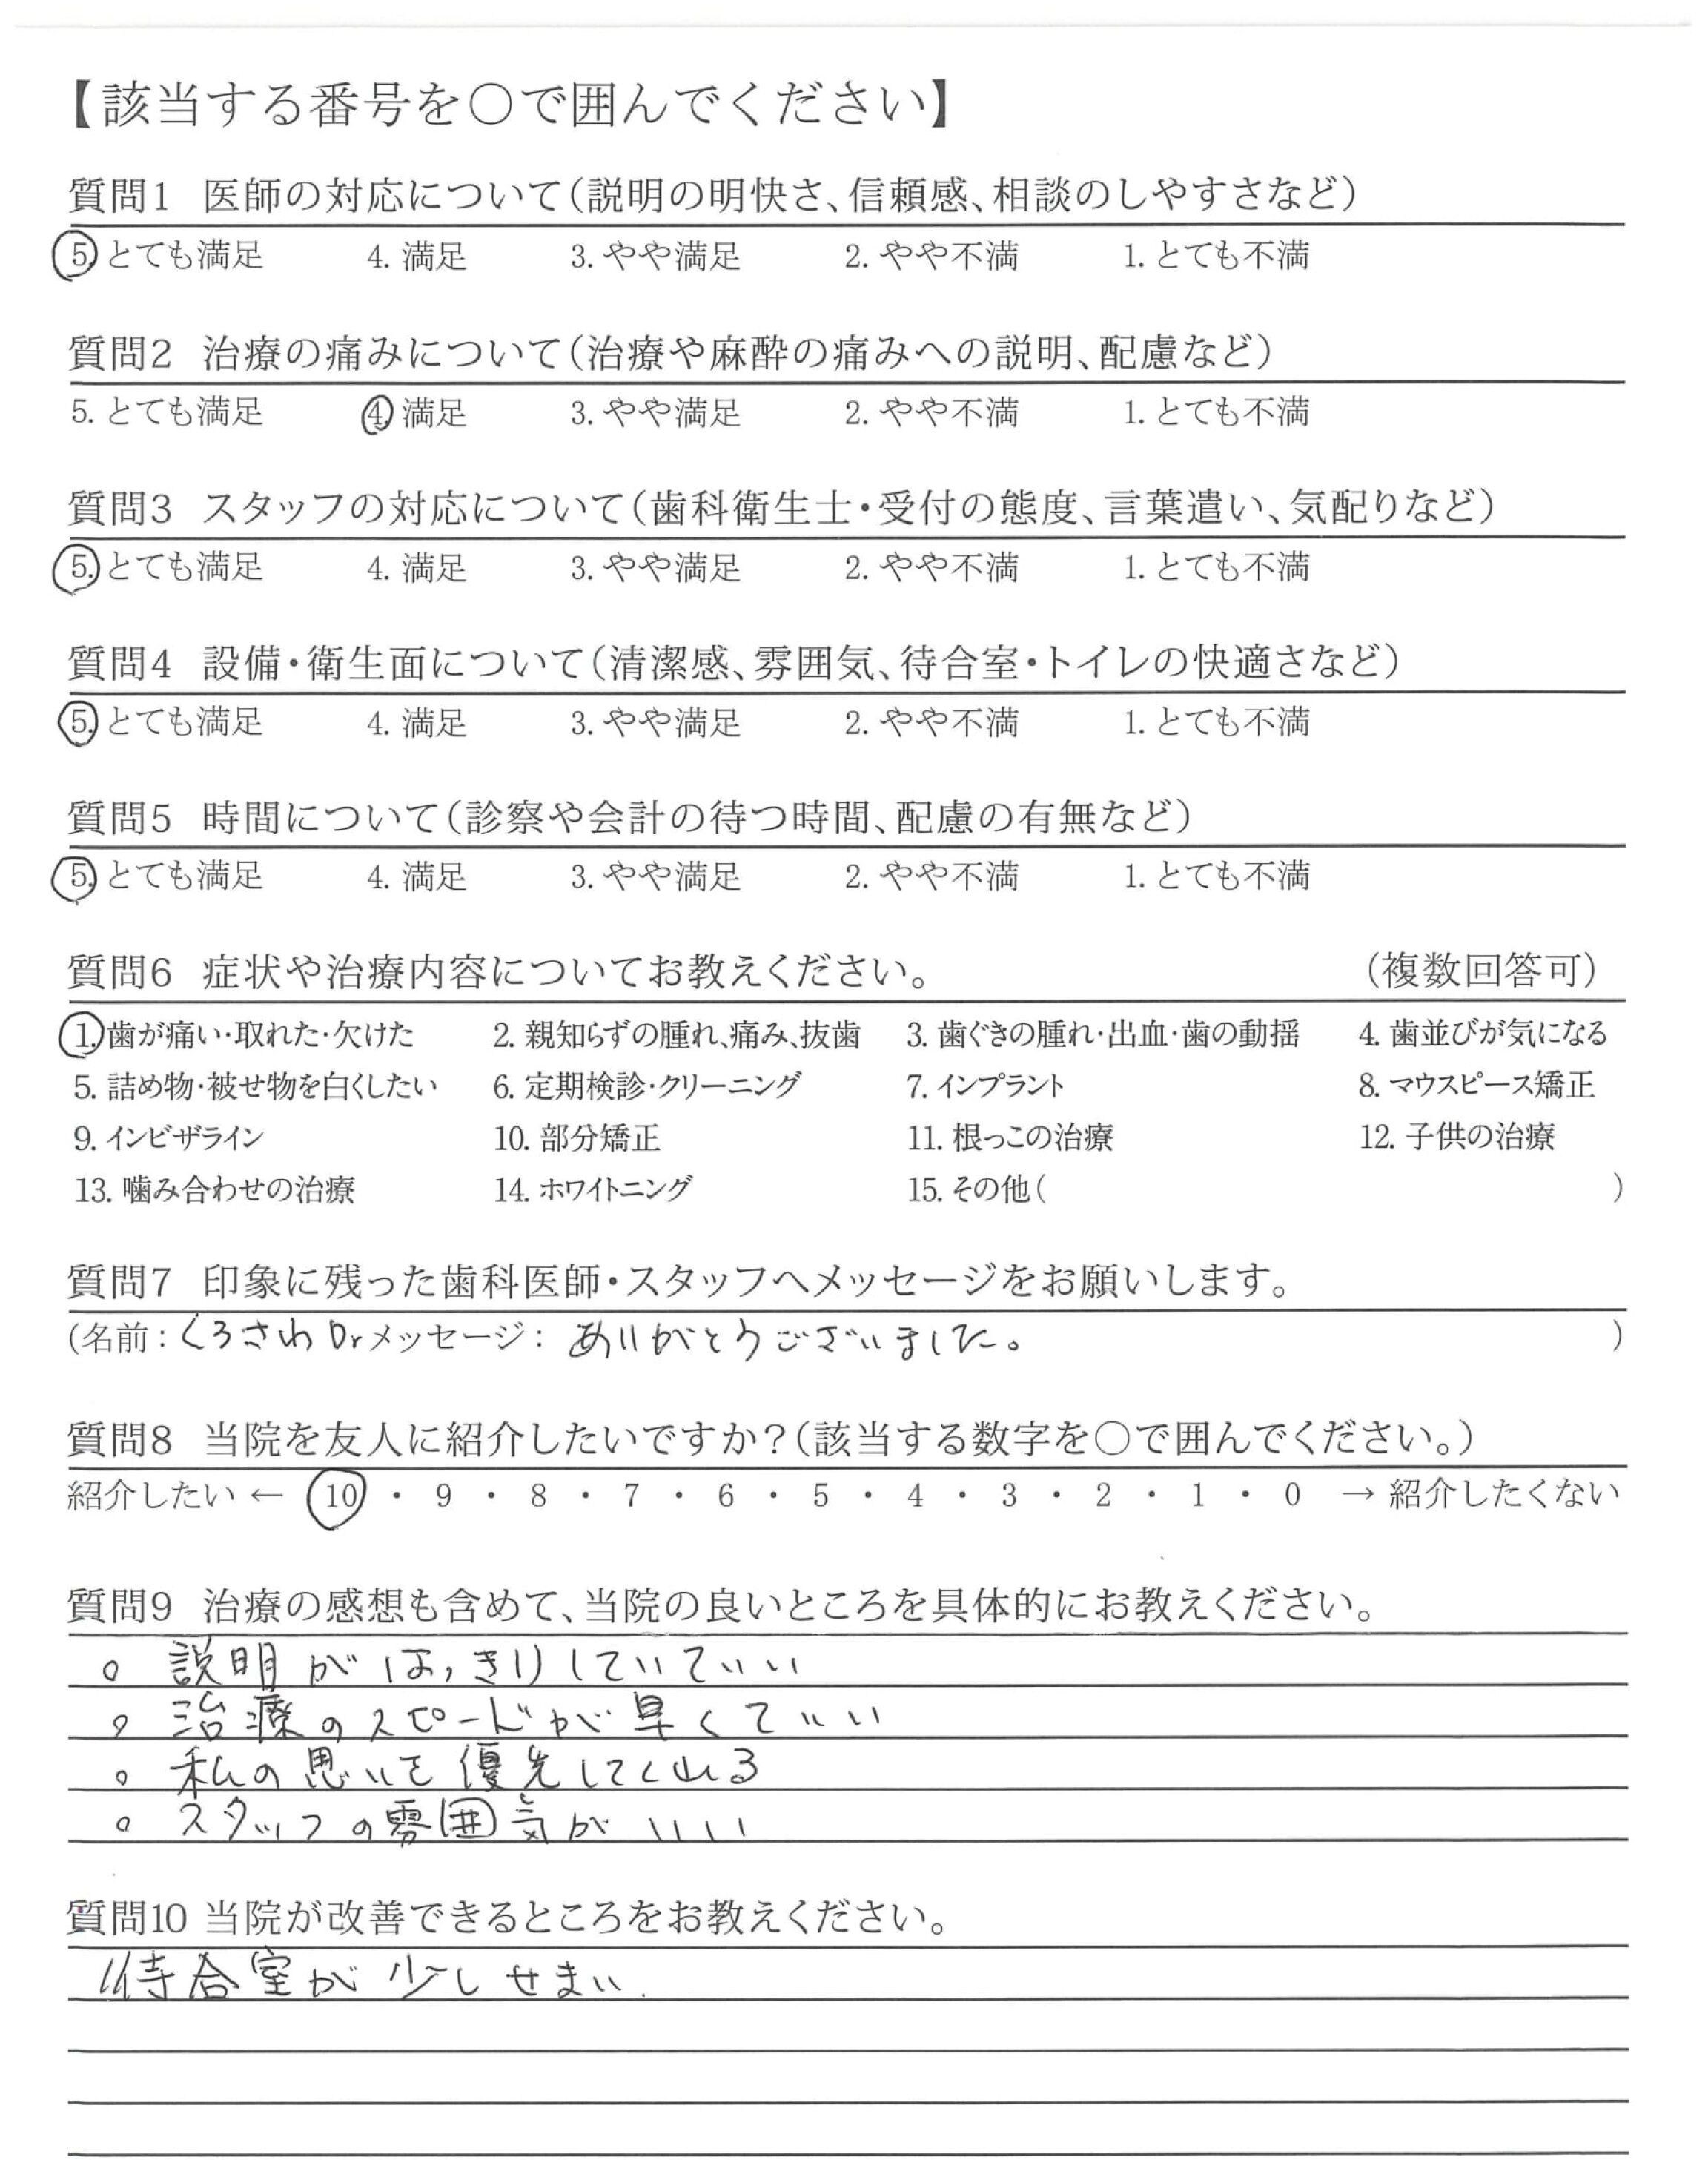 【該当する番号を〇で囲んでください】
質問1 医師の対応について(説明の明快さ、信頼感、相談のしやすさなど)
5. とても満足 4. 満足 3. やや満足 2. やや不満 1. とても不満
質問2 治療の痛みについて(治療や麻酔の痛みへの説明、配慮など)
5. とても満足 4. 満足 3. やや満足 2. やや不満 1. とても不満
質問3 スタッフの対応について(歯科衛生士・受付の態度、言葉遣い、気配りなど)
5. とても満足 4. 満足 3. やや満足 2. やや不満 1. とても不満
質問4 設備・衛生面について(清潔感、雰囲気、待合室・トイレの快適さなど)
5. とても満足 4. 満足 3. やや満足 2. やや不満 1. とても不満
質問5 時間について(診察や会計の待つ時間、配慮の有無など)
5. とても満足 4. 満足 3. やや満足 2. やや不満 1. とても不満
質問6 症状や治療内容についてお教えください。 (複数回答可)
1. 歯が痛い・取れた・欠けた 2. 親知らずの腫れ、痛み、抜歯 3. 歯ぐきの腫れ・出血・歯の動揺 4. 歯並びが気になる
5. 詰め物・被せ物を白くしたい 6. 定期検診・クリーニング 7. インプラント 8. マウスピース矯正
9. インビザライン 10. 部分矯正 11. 根っこの治療 12. 子供の治療
13. 噛み合わせの治療 14. ホワイトニング 15. その他( )
質問7 印象に残った歯科医師・スタッフへメッセージをお願いします。
(名前:くろさわDrメッセージ: ありがとうございました。 )
質問8 当院を友人に紹介したいですか?(該当する数字を〇で囲んでください。)
紹介したい ← 10 ・ 9 ・ 8 ・ 7 ・ 6 ・ 5 ・ 4 ・ 3 ・ 2 ・ 1 ・ 0 → 紹介したくない
質問9 治療の感想も含めて、当院の良いところを具体的にお教えください。
。説明がはっきりしていていい
。治療のスピードが早くていい
。私の思いを優先してくれる
。スタッフの雰囲気がいい
質問10 当院が改善できるところをお教えください。
待合室が少しせまい.